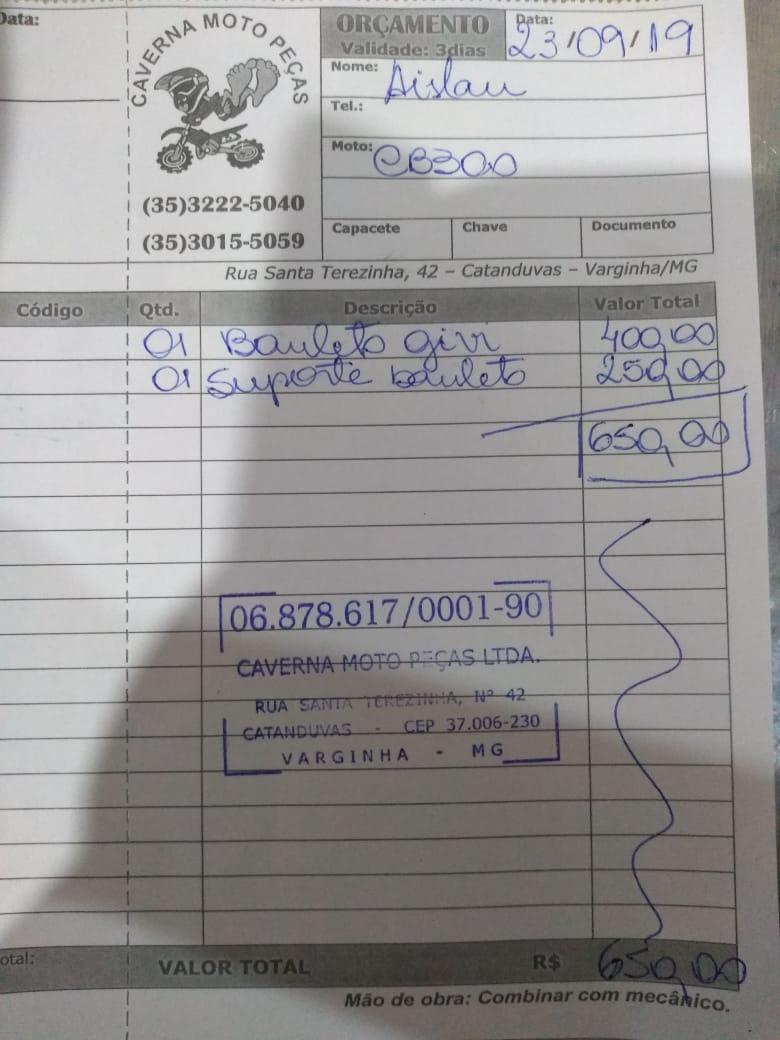 Data:
CAVERNA MOTO PEÇAS
(35)3222-5040
(35)3015-5059
ORÇAMENTO
Validade: 3dias
Data: 23/09/19
Nome: Aislan
Tel.:
Moto: CB300
Capacete Chave Documento
Rua Santa Terezinha, 42 – Catanduvas – Varginha/MG
Código Qtd. Descrição Valor Total
01 Bauleto givi 400,00
01 Suporte bauleto 250,00
650,00
06.878.617/0001-90
CAVERNA MOTO PEÇAS LTDA.
RUA SANTA TEREZINHA, Nº 42
CATANDUVAS - CEP 37.006-230
VARGINHA - MG
otal: VALOR TOTAL R$ 650,00
Mão de obra: Combinar com mecânico.